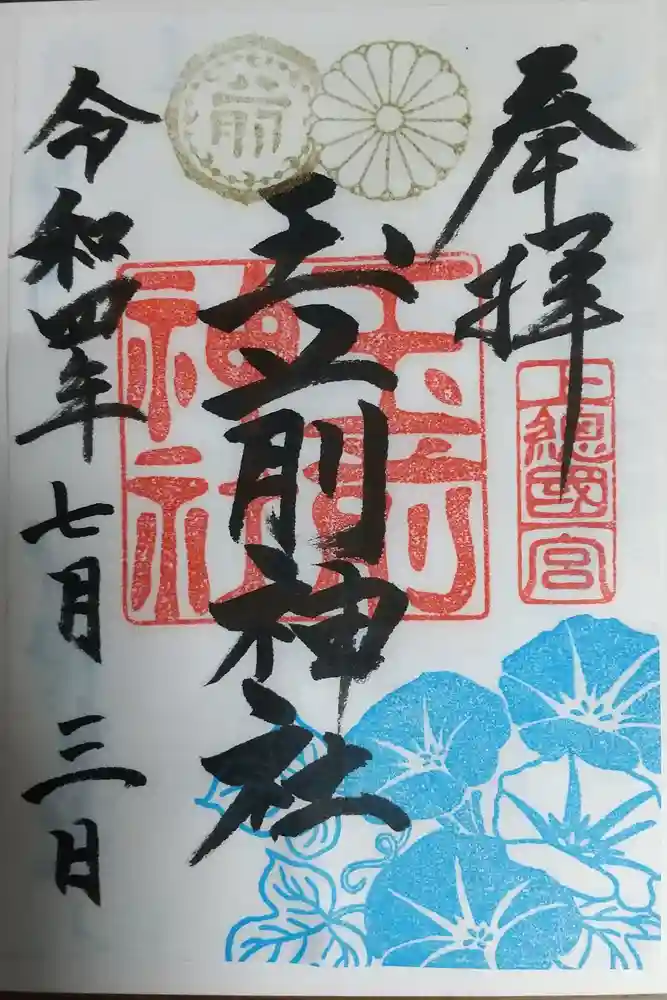 奉拝
上總國一宮
玉前神社
玉前神社
令和四年七月三日